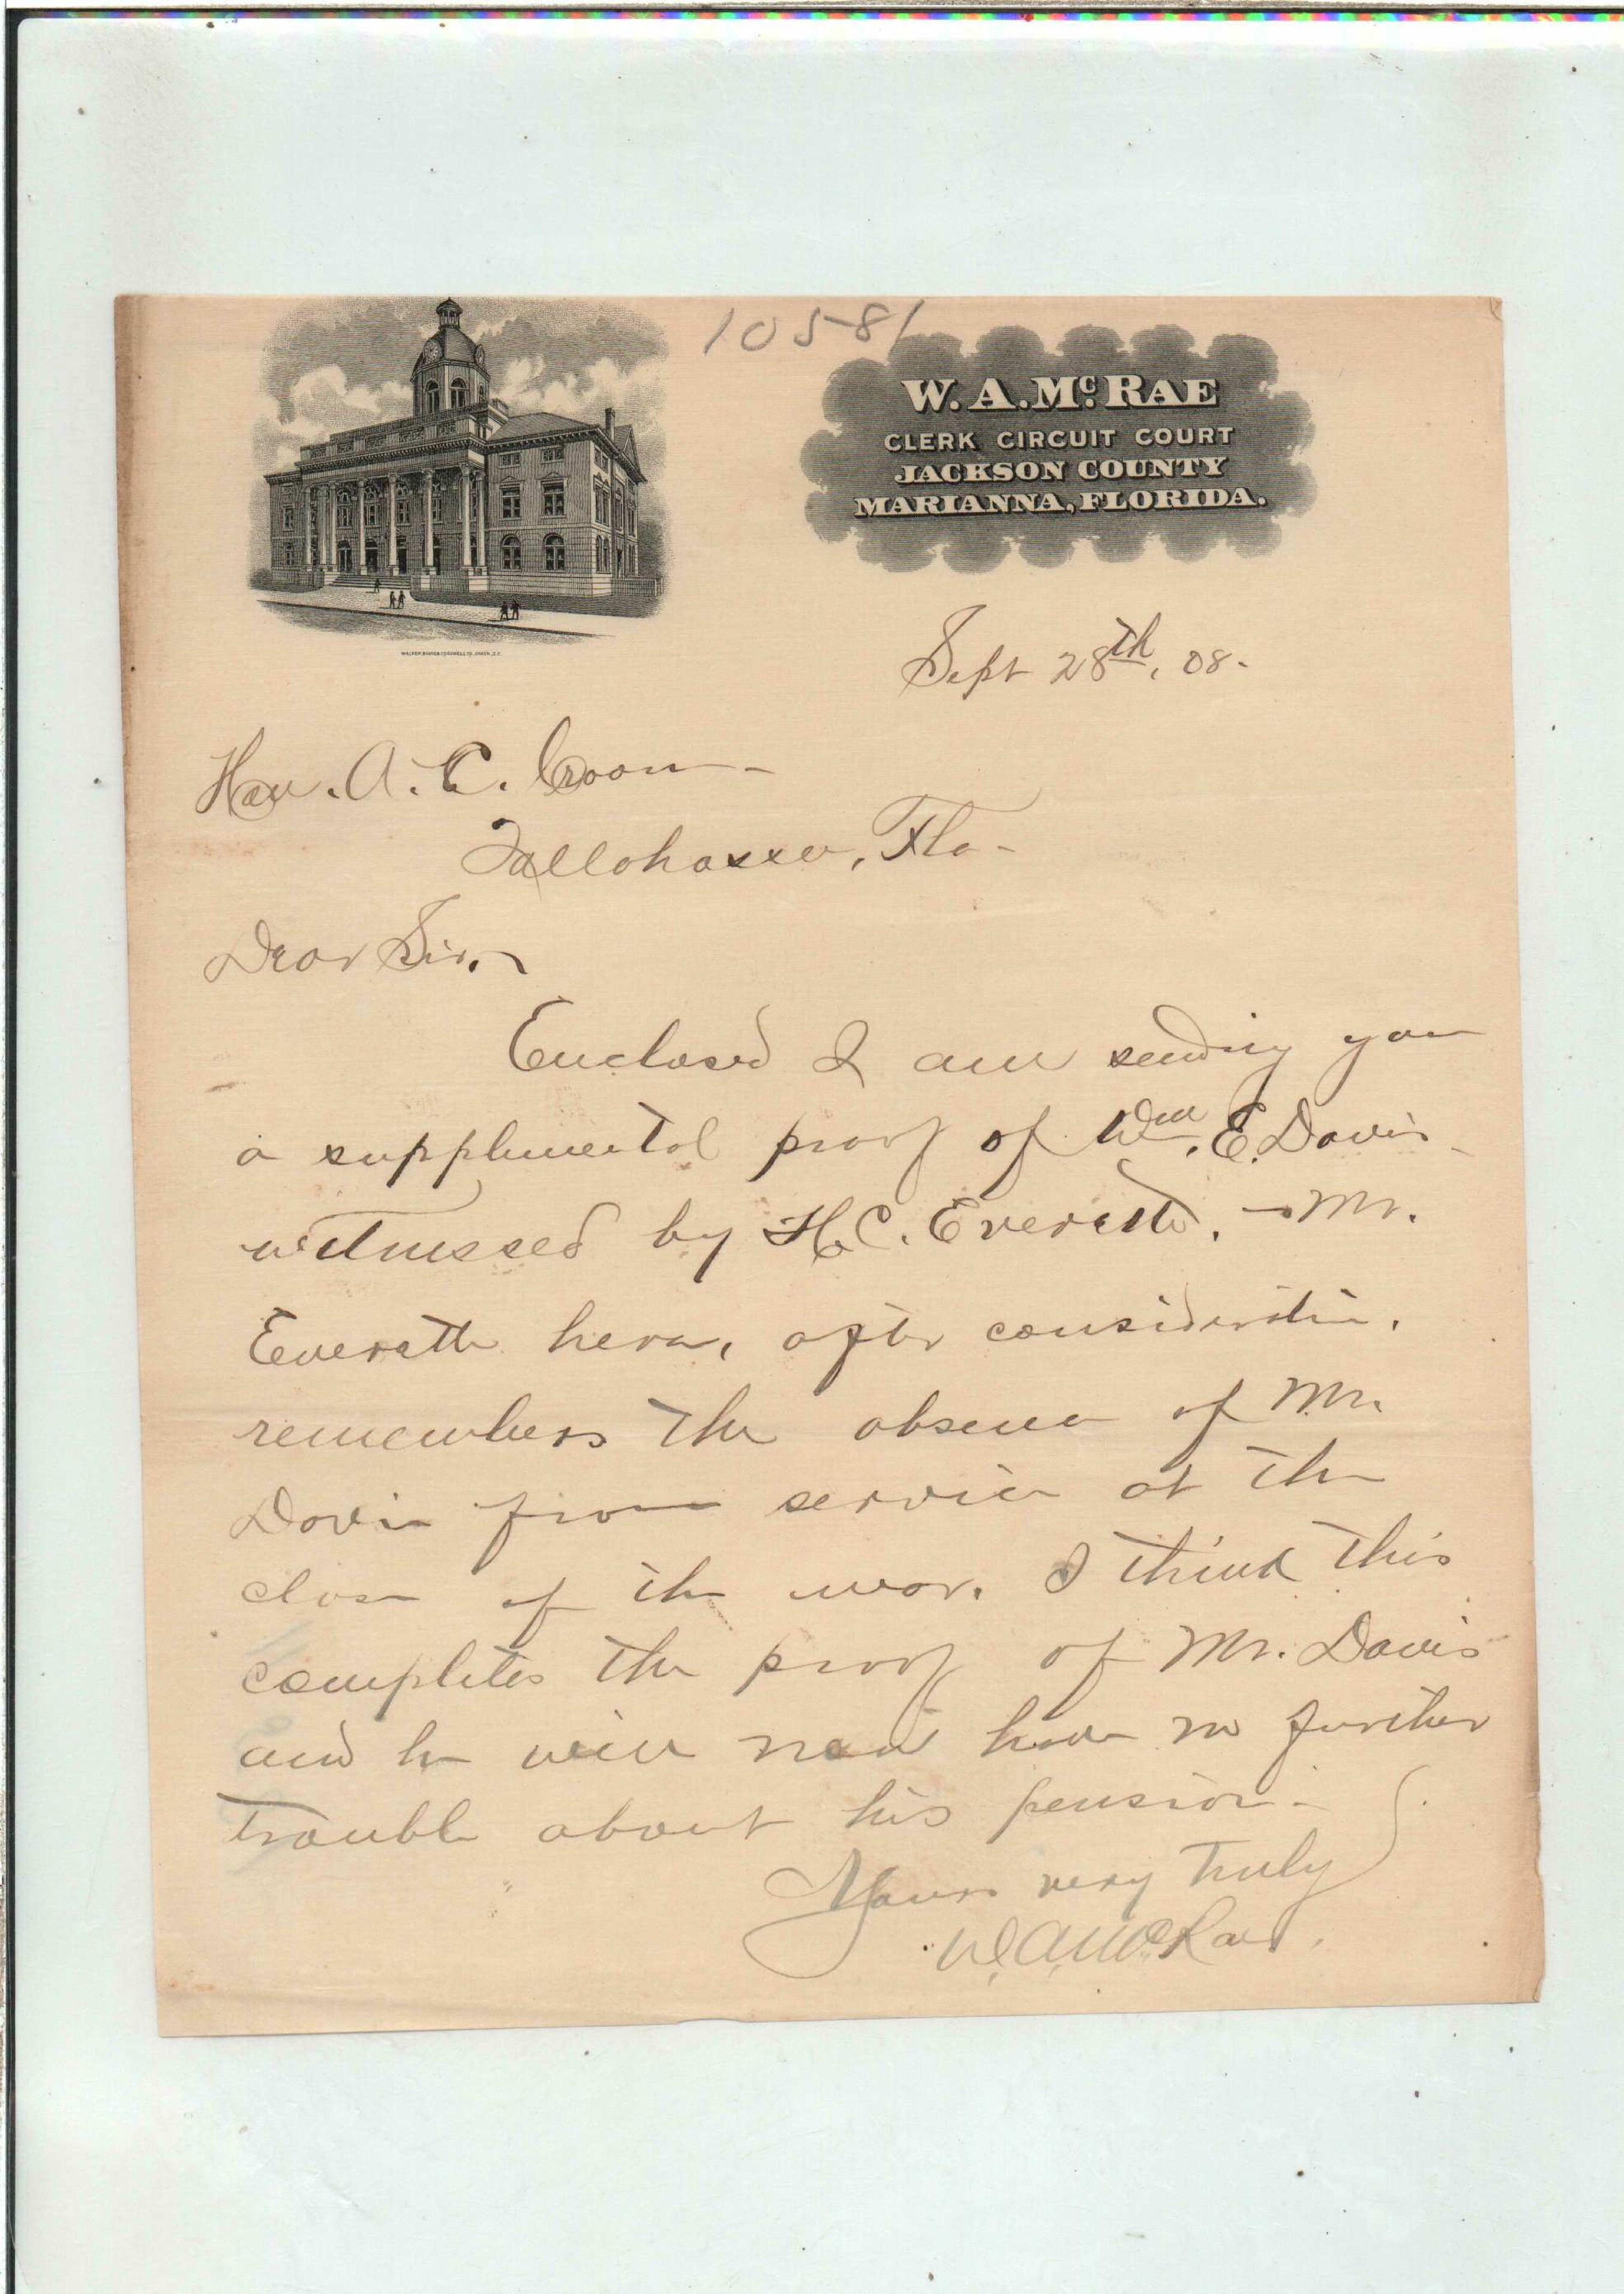 10581
W. A. McRAE
CLERK CIRCUIT COURT
JACKSON COUNTY
MARIANNA, FLORIDA.
Sept 28th, 08.
Hon. A. C. Croom-
Tallahassee, Fla-
Dear Sir,-
Enclosed I am sending you
a supplimental proof of Wm. E. Davis
witnessed by H. C. Everett. - Mr.
Everett here, after consideration,
remembers the absence of Mr.
Davis from service at the
close of the war. I think this
completes the proof of Mr. Davis
and he will now have no further
trouble about his pension-
Yours very truly
W. A. McRae.